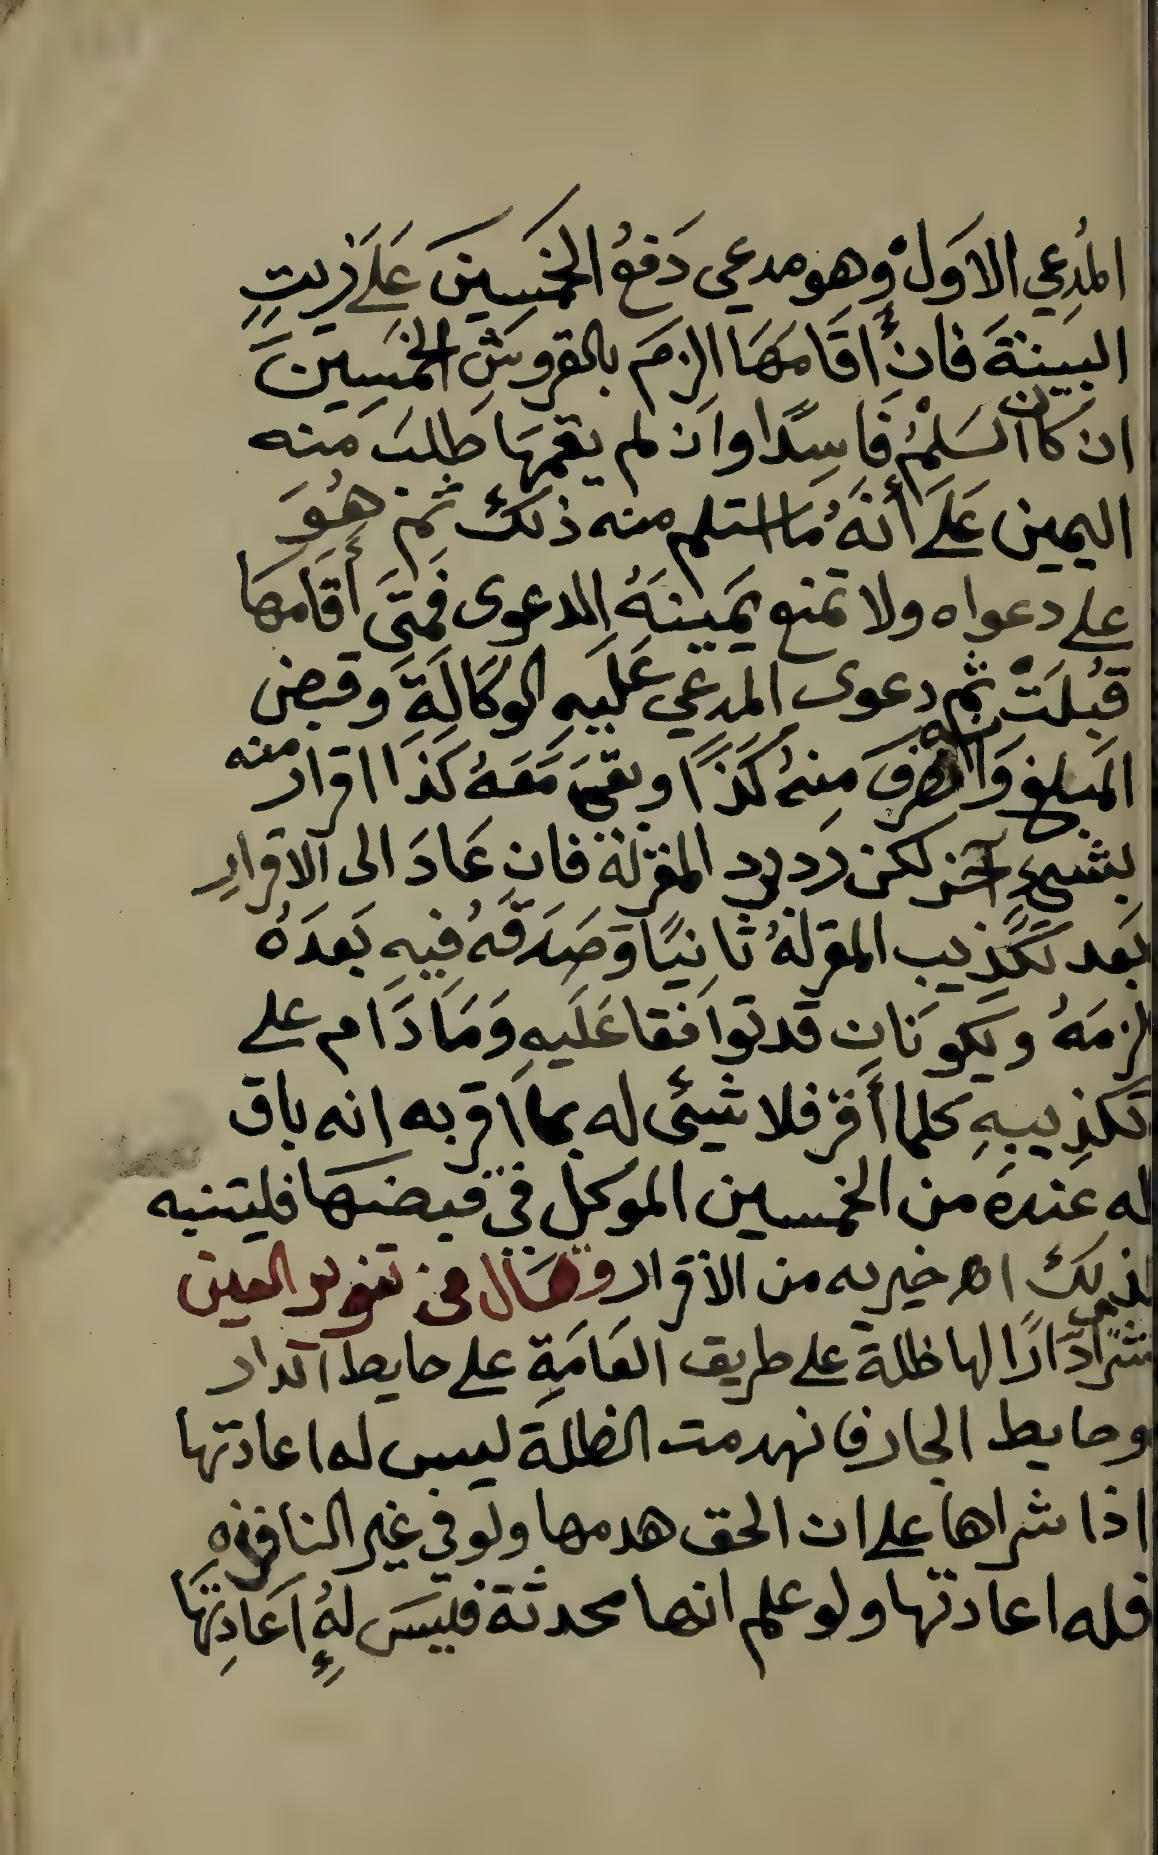 المُدعِي الاَول وهو مدعي دَفعُ الخمَسِينَ عَلَى زيتٍ
البيِنةَ فان أَقَامَهَا الزمَ بالقروشِ الخمَسِينَ
ان كان السَلمُ فَاسِدًا وان لم يقمهَا طلبَ منه
اليمين عَلَى أنهُ مَا استلم منه ذلك ثم هُوَ
على دعواه ولا تمنع يمَينَهُ الدعوى فمتَى أَقَامَها
قبُلَتْ ثم دعوى المدعي عَليهِ الوكَالَةَ وقبض
المَبلغ وَانه صرفَ مِنهُ كَذَا وبقي مَعَهُ كَذَا اقرار منه
بشيءٍ آخر لكن رد برد المقر له فان عَادَ الى الاقرارِ
بَعد تَكذيب المقر لهُ ثانيًا وَصَدقَهُ فيهِ بَعدَهُ
لزمَهُ ويكونَانِ قد توافقا عَلَيهِ وَمَا دَام على
تكذِيبهِ كلما أَقر فلا شيئ له بما اقر به انه باق
له عنده من الخمسين الموكل في قبضها فليتنبه
لذلك اه خيريه من الاقرار وقال في تنوير العين
شرى دَارًا لها ظلة على طريق العَامَةِ على حايط الدار
وحايط الجار فانهدمت الظلة ليس له اعادتها
اذا شراها على ان الحق هدمها ولو في غير النافذه
فله اعادتها ولو علم انها محدثة فليسَ لهُ اعَادِتهَا